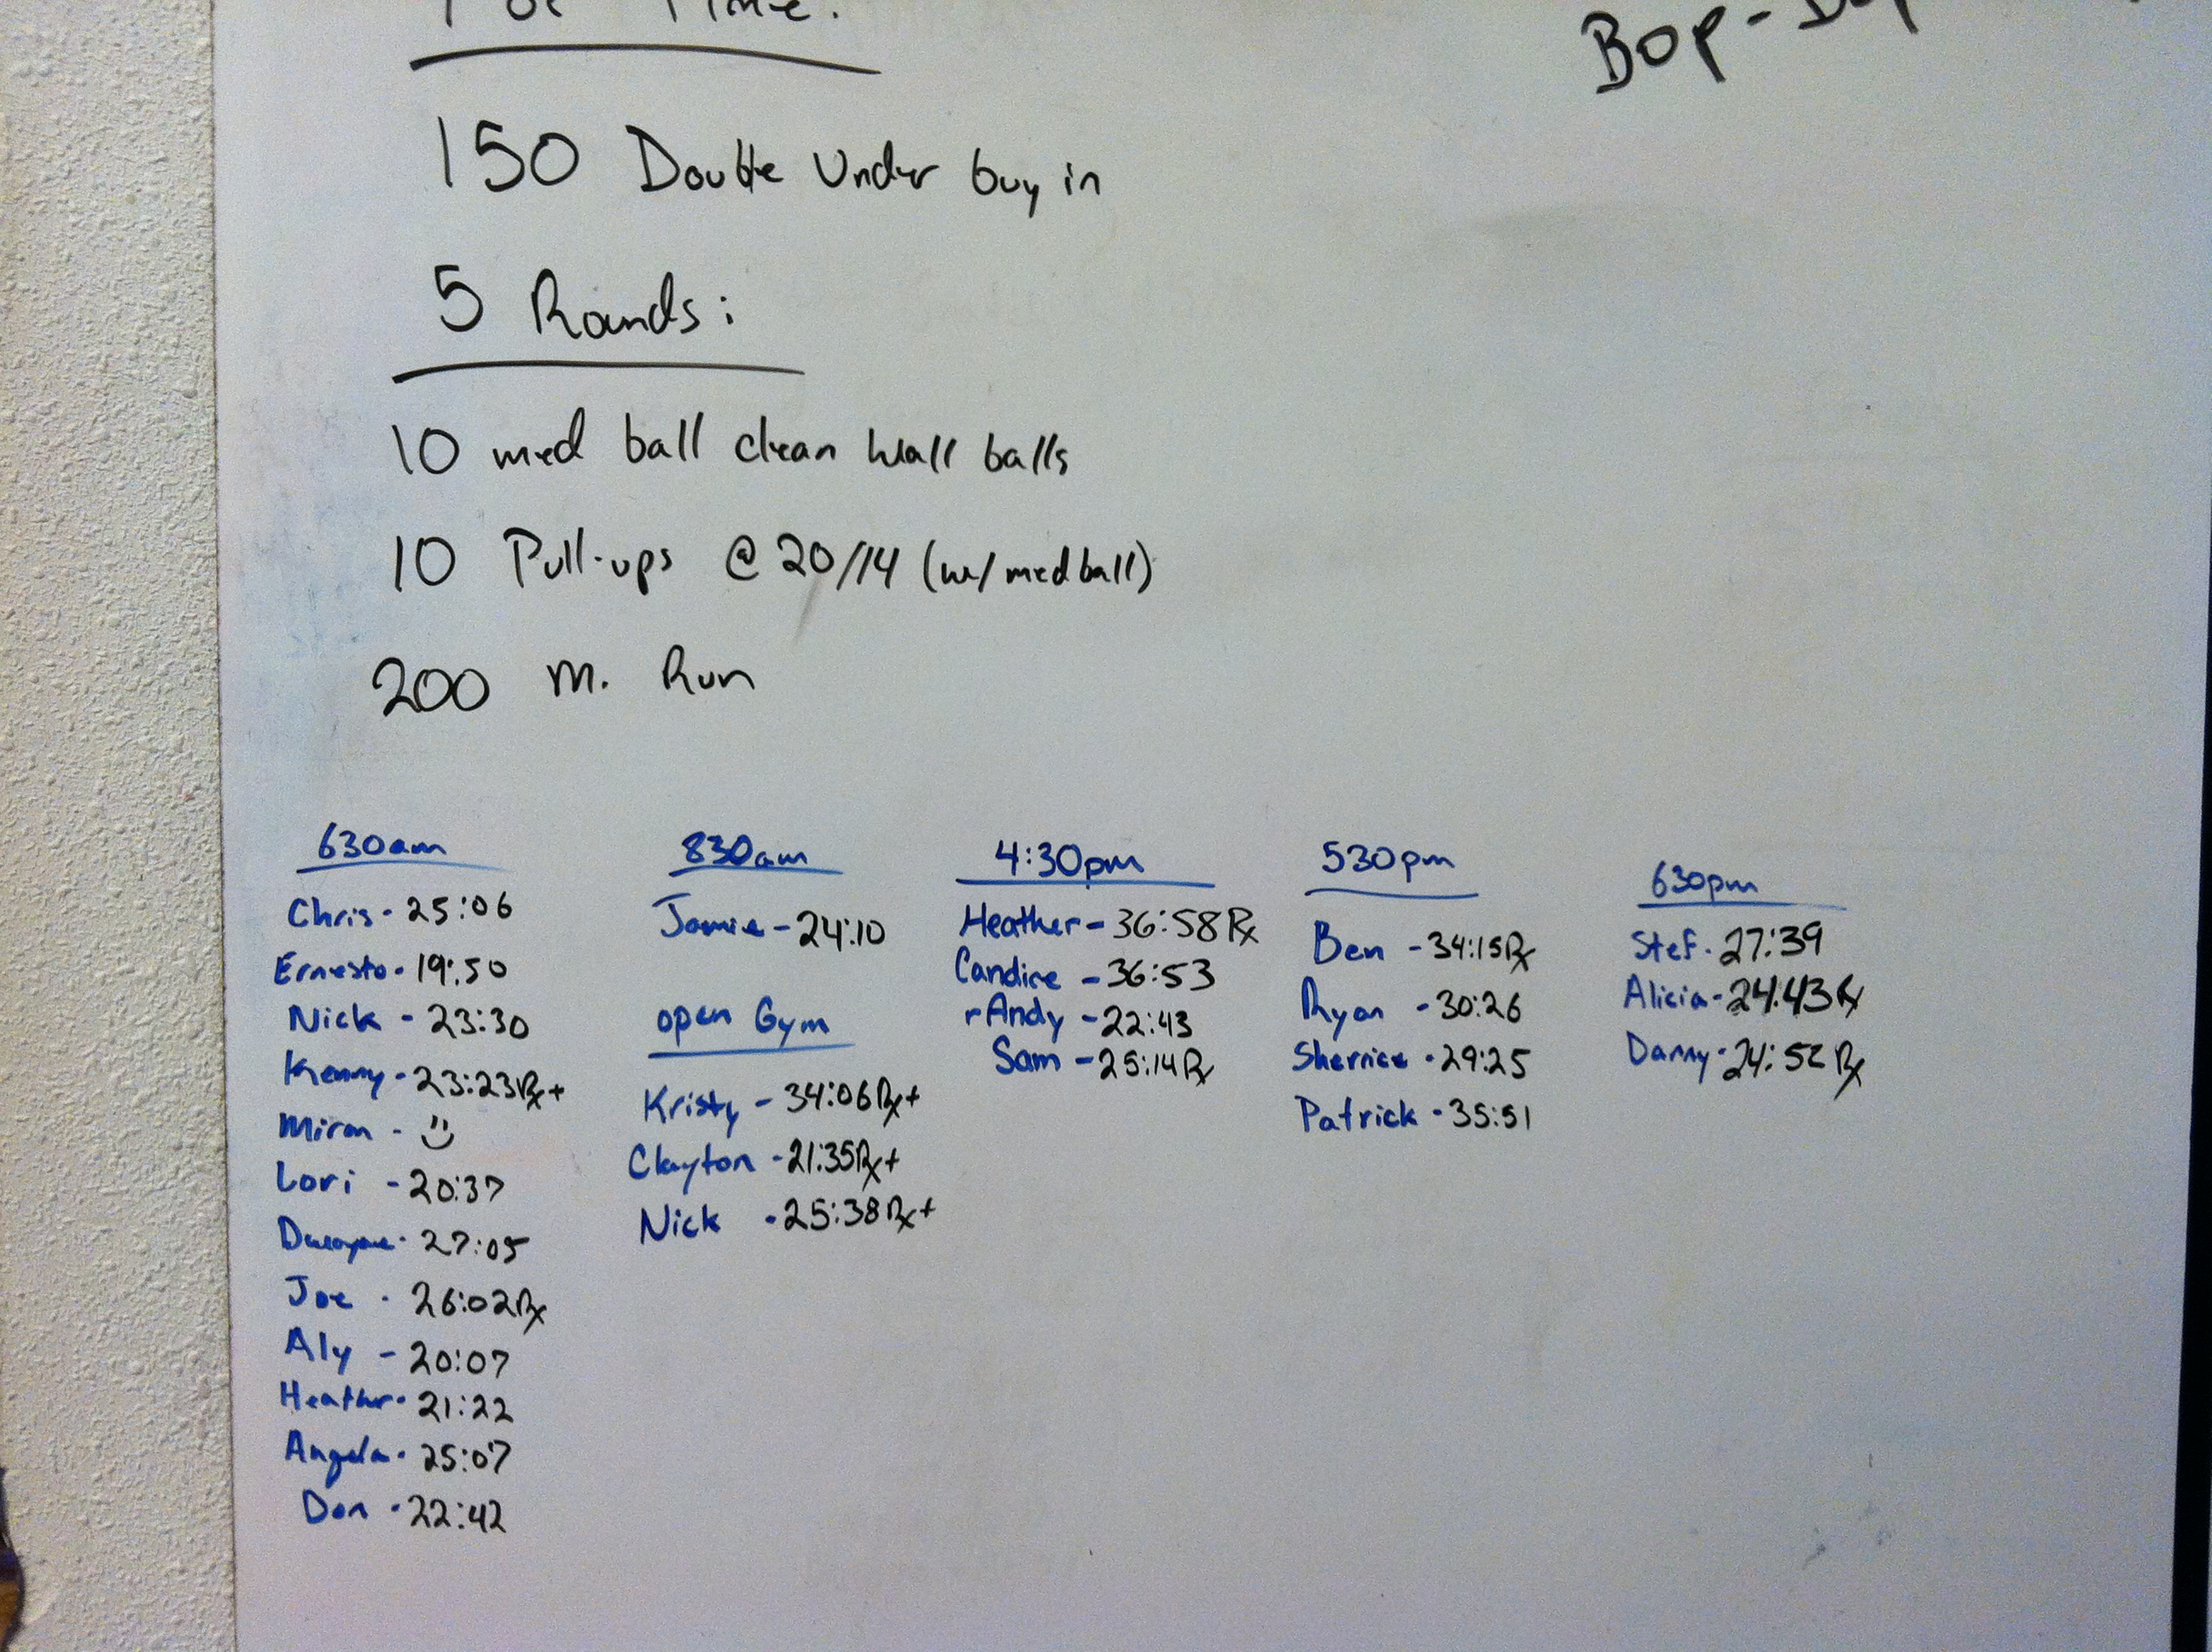 For Time:
Bop-
150 Double Under buy in
5 Rounds:
10 med ball clean wall balls
10 Pull-ups @ 20/14 (w/ medball)
200 m. Run
630am
Chris - 25:06
Ernesto - 19:50
Nick - 23:30
Kenny - 23:23 Rx+
Miran - :)
Lori - 20:37
Dwayne - 27:05
Joe - 26:02 Rx
Aly - 20:07
Heather - 21:22
Angela - 25:07
Don - 22:42
830am
Jamie - 24:10
open Gym
Kristy - 34:06 Rx+
Clayton - 21:35 Rx+
Nick - 25:38 Rx+
4:30pm
Heather - 36:58 Rx
Candice - 36:53
rAndy - 22:43
Sam - 25:14 Rx
530pm
Ben - 34:15 Rx
Ryan - 30:26
Sherrice - 29:25
Patrick - 35:51
630pm
Stef - 27:39
Alicia - 24:43 Rx
Danny - 24:52 Rx